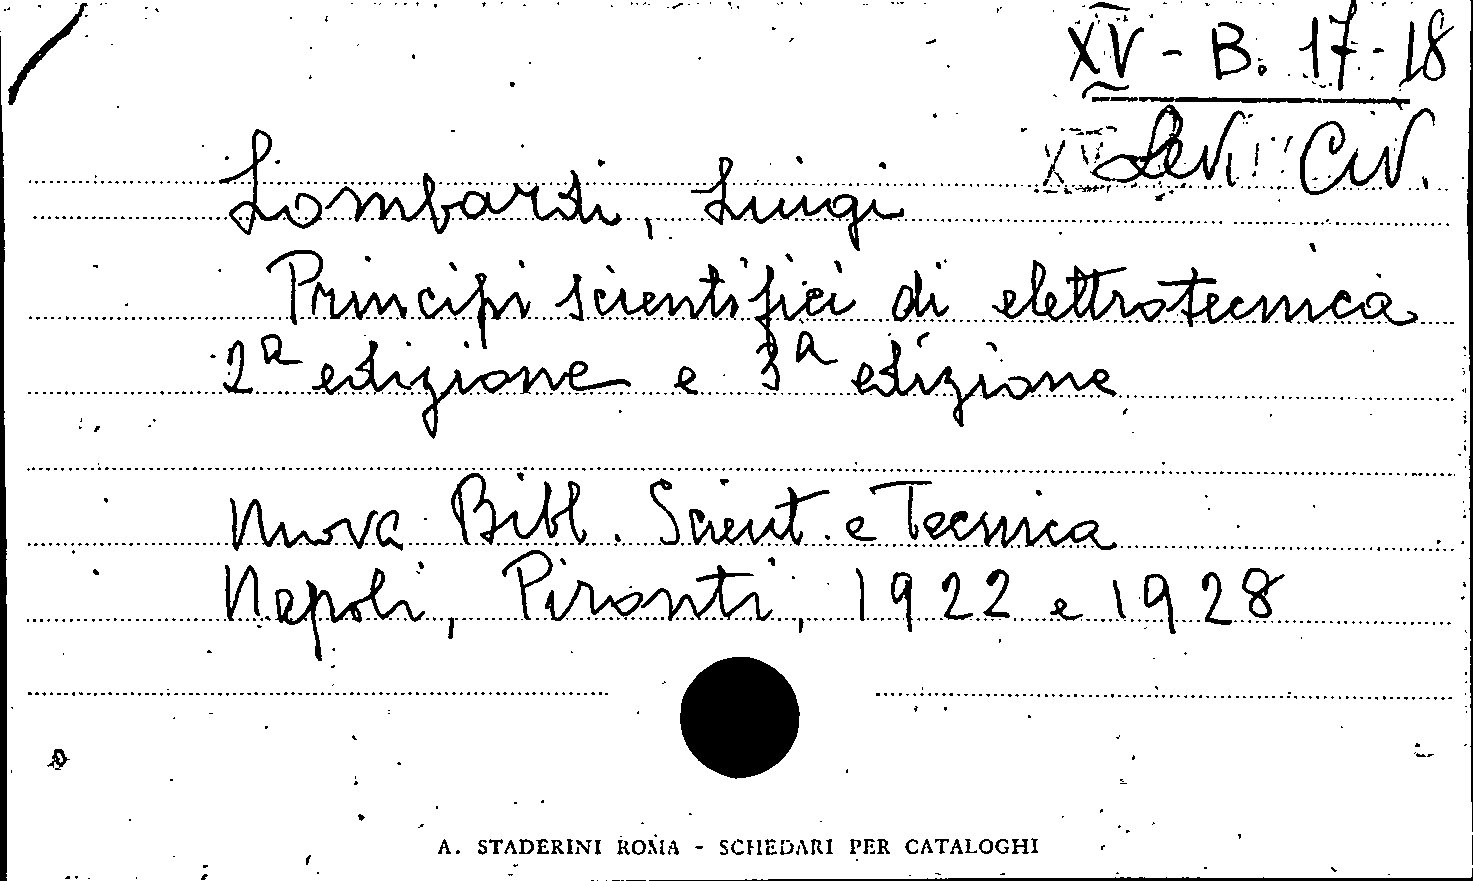 XV - B. 17-18
Levi Civ.
Lombardi, Luigi
Principi scientifici di elettrotecnica
2ª edizione e 3ª edizione
Nuova Bibl. Scient. e Tecnica
Napoli, Pironti, 1922 e 1928
A. STADERINI ROMA - SCHEDARI PER CATALOGHI